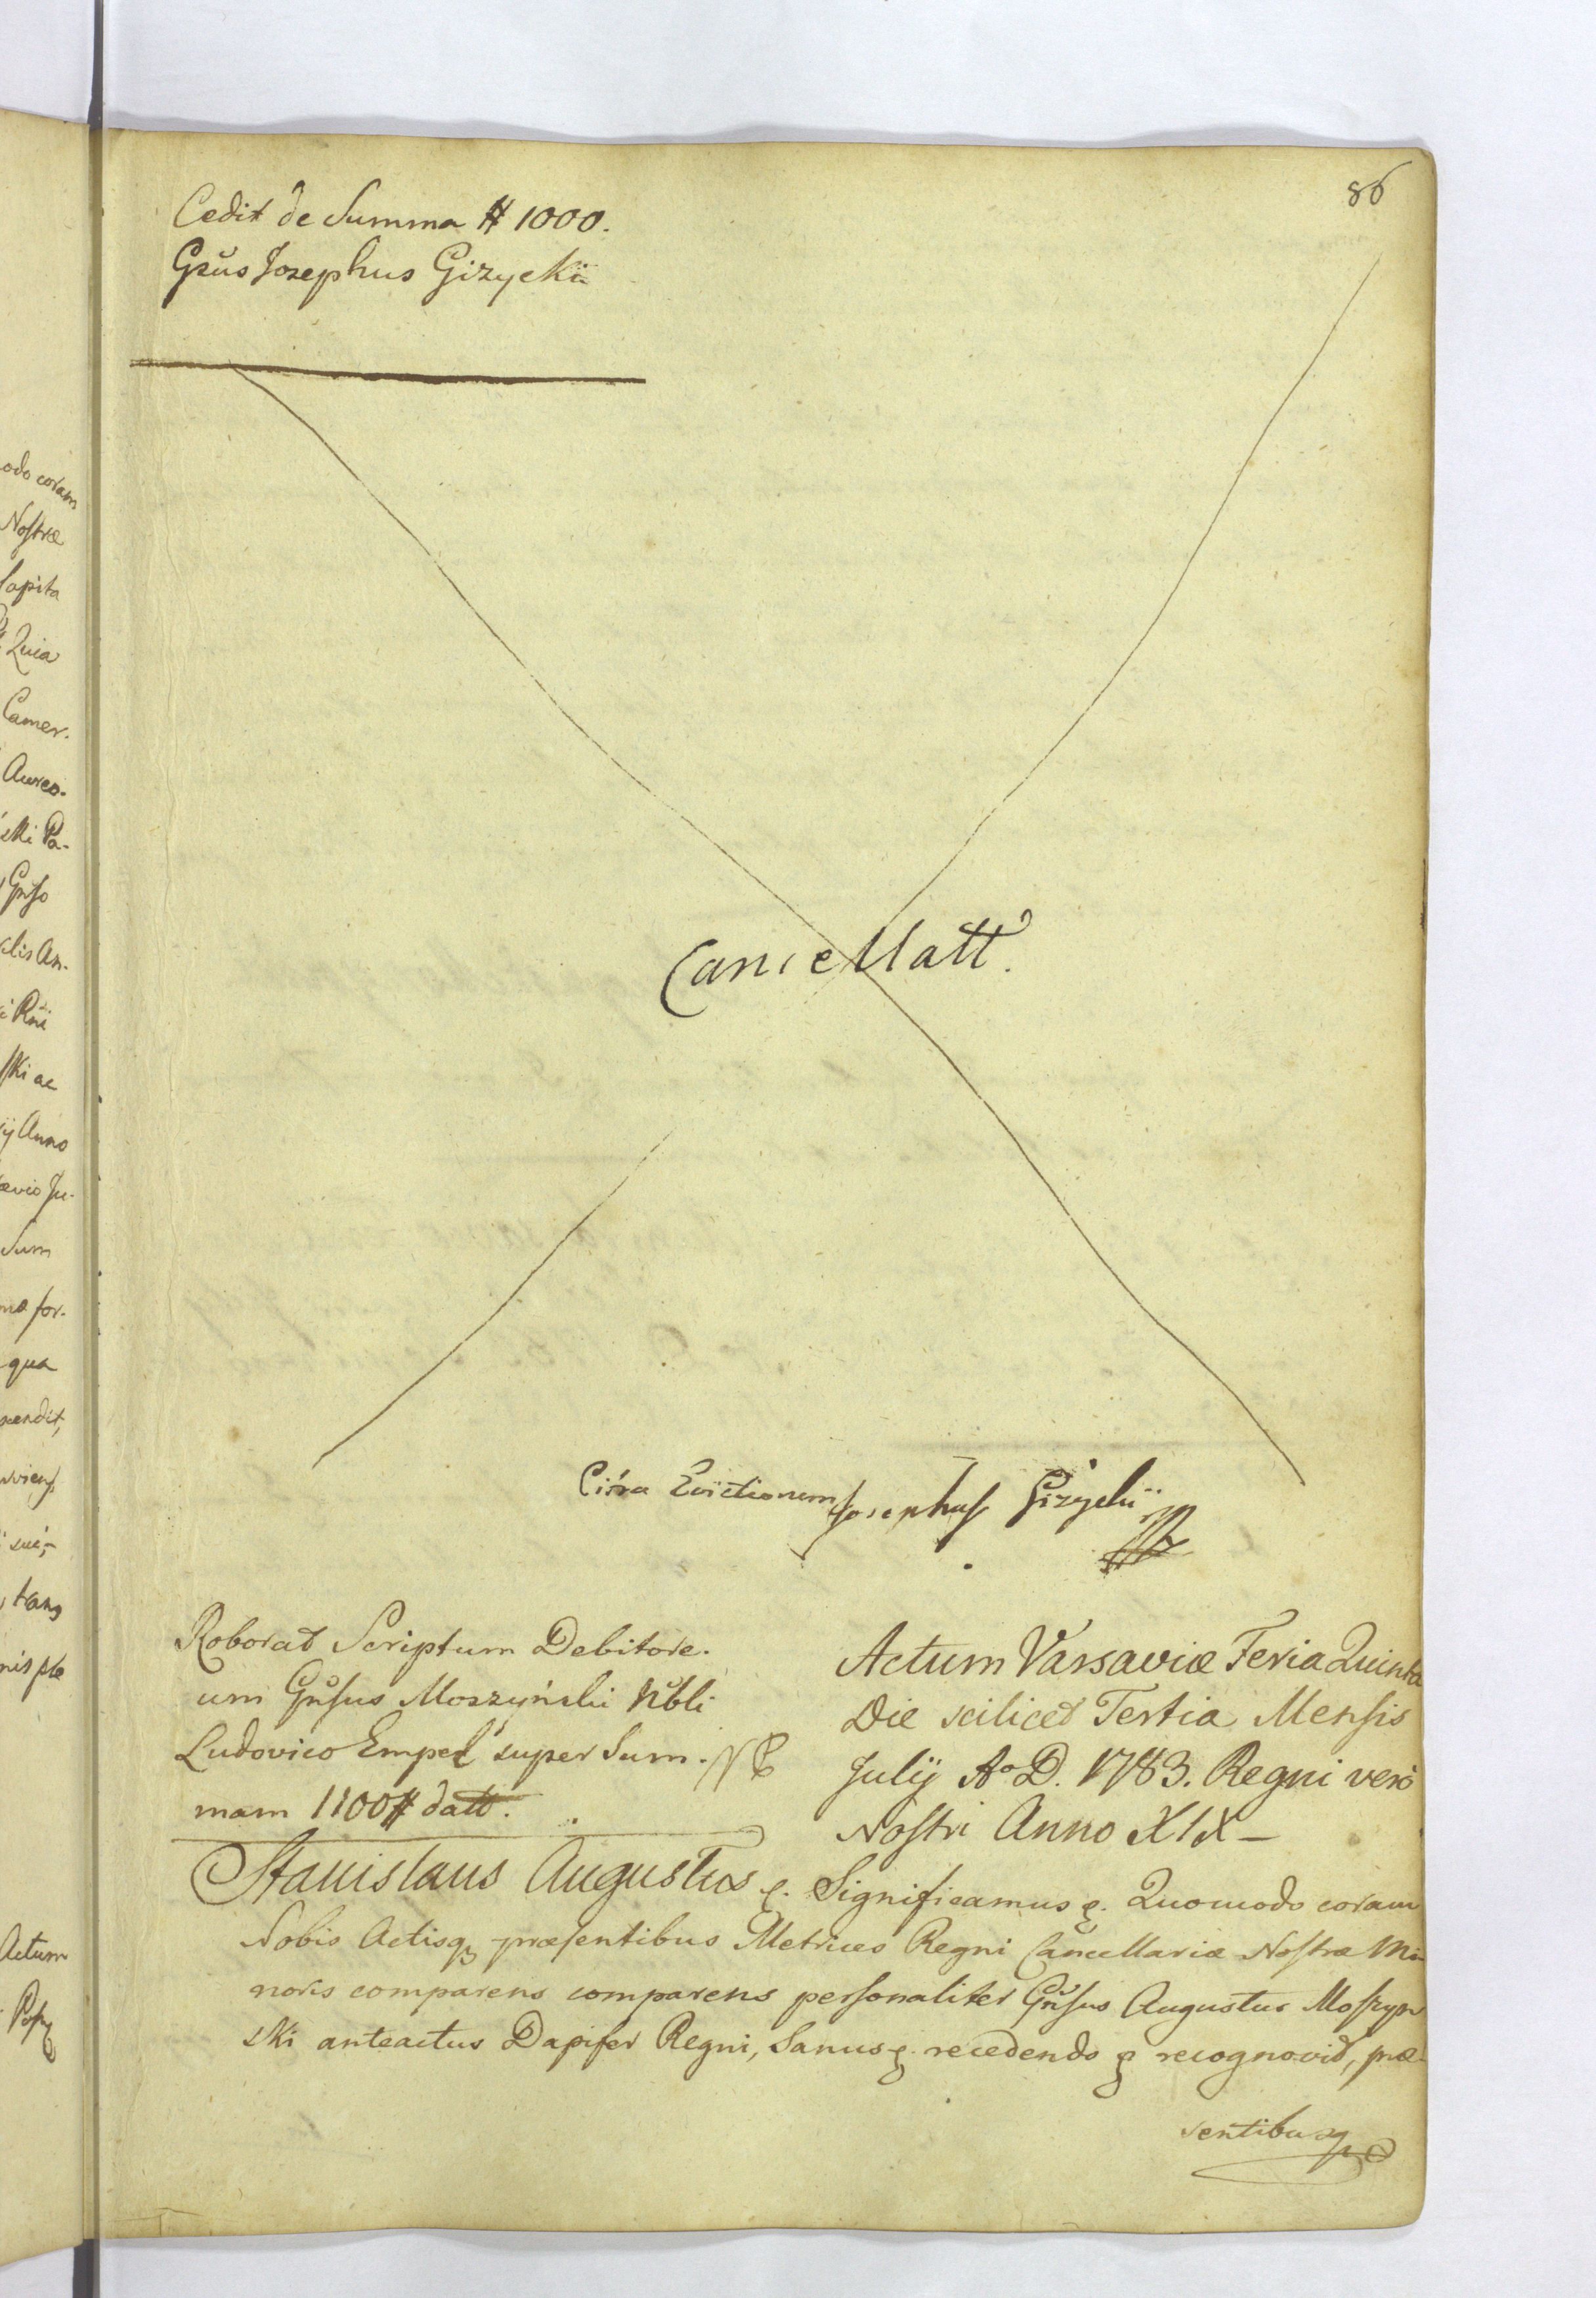 86
Cedit de Summa # 1000.
Gnus Josephus Gizycki
Cancellatt.
Citra Evictionem Josephus Gizycki
Roborat Scriptum Debitore.
um Gnsus Moszyński Nbli
Ludovico Empel super Sum.
mam 1100 # datt.
Actum Varsaviæ Feria Quinta
Die scilicet Tertia Mensis
Julij Ao D. 1783. Regni verò
Nostri Anno XIX –
Stanislaus Augustus &. Significamus &. Quomodo coram
Nobis Actisq præsentibus Metrices Regni Cancellariæ Nostræ Mi-
noris comparens comparens personaliter Gnsus Augustus Moszyn
ski anteactus Dapifer Regni, Sanus &. recedendo & recognovit, præ-
sentibusq
odo coram
Nostræ
Capita
Quia
Camer.
Aureo.
ski Pa-
Gnso
lis An-
Rni
ski ac
ij Anno
ævio Ju-
Sum
ma for-
qua
sui,
trans
nis ple
Actum